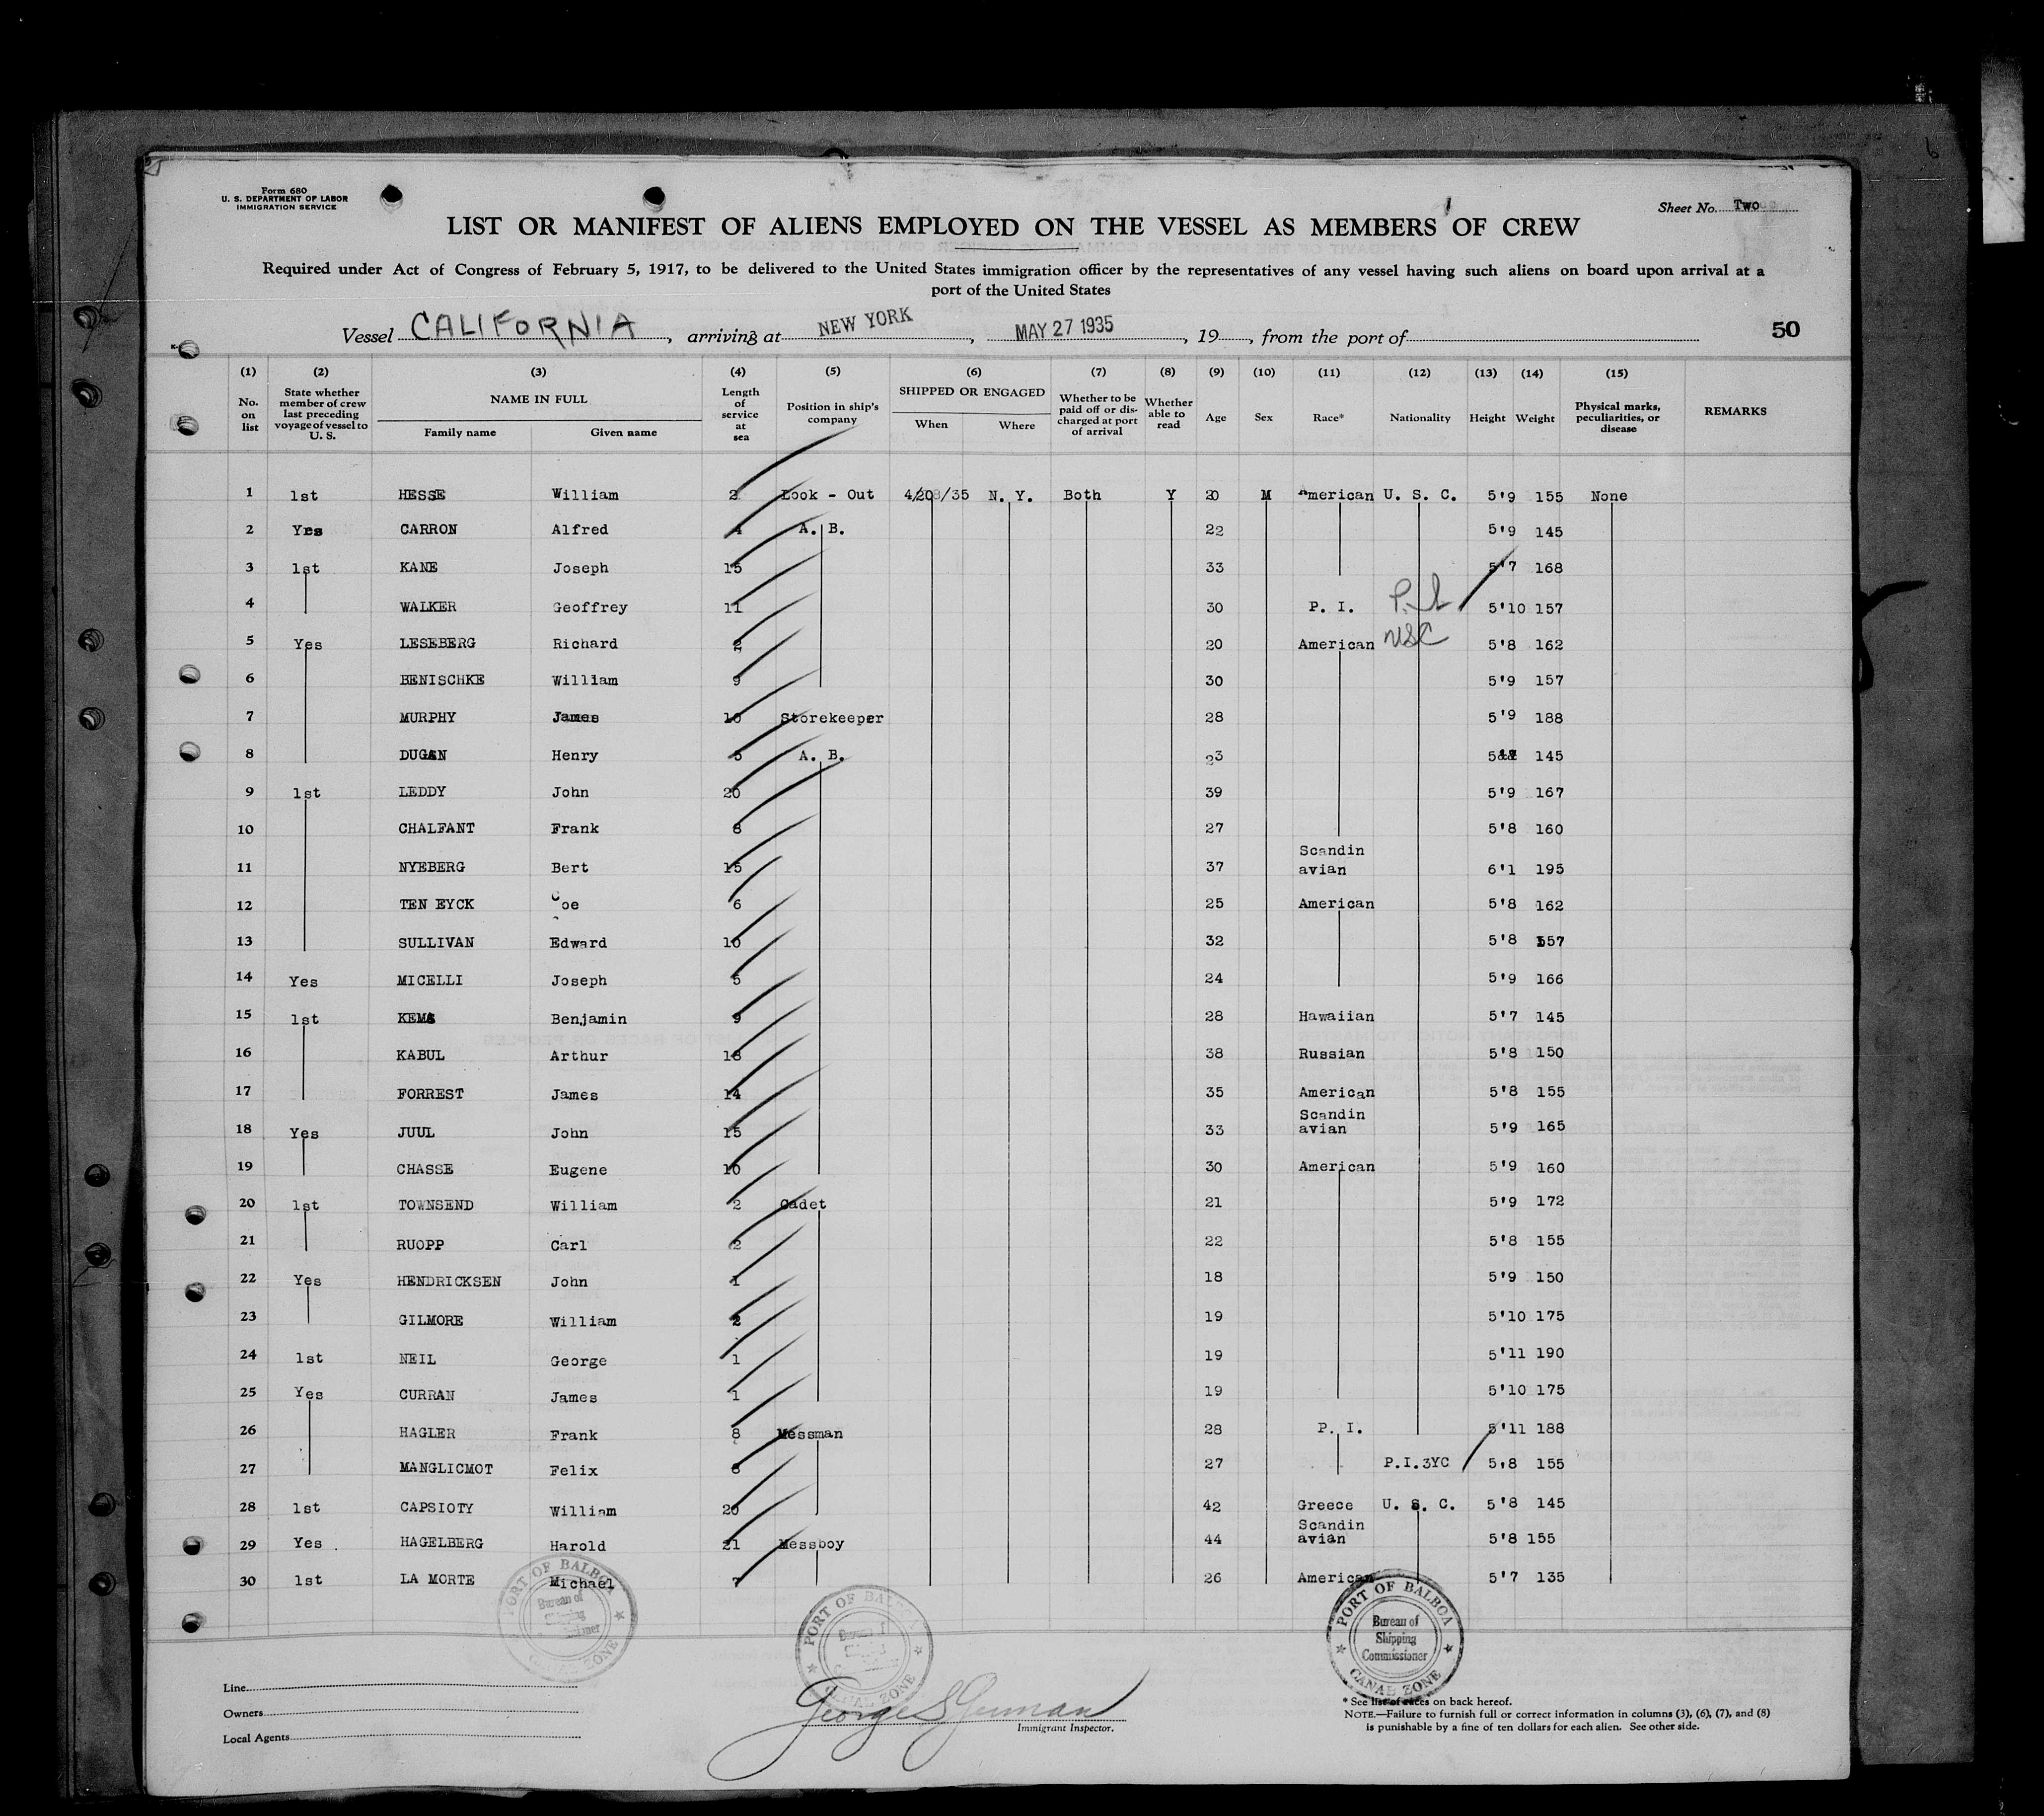 Form 680
U. S. DEPARTMENT OF LABOR
IMMIGRATION SERVICE
Sheet No. Two
LIST OR MANIFEST OF ALIENS EMPLOYED ON THE VESSEL AS MEMBERS OF CREW
Required under Act of Congress of February 5, 1917, to be delivered to the United States immigration officer by the representatives of any vessel having such aliens on board upon arrival at a
port of the United States
Vessel CALIFORNIA, arriving at NEW YORK, MAY 27 1935, 19, from the port of 50
(1) (2) (3) (4) (5) (6) (7) (8) (9) (10) (11) (12) (13) (14) (15)
No. on list State whether member of crew last preceding voyage of vessel to U. S. NAME IN FULL Family name Given name Length of service at sea Position in ship's company SHIPPED OR ENGAGED When Where Whether to be paid off or discharged at port of arrival Whether able to read Age Sex Race* Nationality Height Weight Physical marks, peculiarities, or disease REMARKS
1 1st HESSE William 2 Look - Out 4/20/35 N. Y. Both Y 20 M American U. S. C. 5'9 155 None
2 Yes CARRON Alfred 4 A. B. 22 5'9 145
3 1st KANE Joseph 15 33 5'7 168
4 WALKER Geoffrey 11 30 P. I. P.I. 5'10 157
5 Yes LESEBERG Richard 2 20 American USC 5'8 162
6 BENISCHKE William 9 30 5'9 157
7 MURPHY James 10 Storekeeper 28 5'9 188
8 DUGAN Henry 5 A. B. 23 145
9 1st LEDDY John 20 39 5'9 167
10 CHALFANT Frank 8 27 5'8 160
11 NYEBERG Bert 15 37 Scandin avian 6'1 195
12 TEN EYCK Coe 6 25 American 5'8 162
13 SULLIVAN Edward 10 32 5'8 157
14 Yes MICELLI Joseph 5 24 5'9 166
15 1st KEMA Benjamin 9 28 Hawaiian 5'7 145
16 KABUL Arthur 18 38 Russian 5'8 150
17 FORREST James 14 35 American 5'8 155
18 Yes JUUL John 15 33 Scandin avian 5'9 165
19 CHASSE Eugene 10 30 American 5'9 160
20 1st TOWNSEND William 2 Cadet 21 5'9 172
21 RUOPP Carl 2 22 5'8 155
22 Yes HENDRICKSEN John 1 18 5'9 150
23 GILMORE William 2 19 5'10 175
24 1st NEIL George 1 19 5'11 190
25 Yes CURRAN James 1 19 5'10 175
26 HAGLER Frank 8 Messman 28 P. I. 5'11 188
27 MANGLICMOT Felix 8 27 P.I.3YC 5.8 155
28 1st CAPSIOTY William 20 42 Greece U. S. C. 5'8 145
29 Yes HAGELBERG Harold 21 Messboy 44 Scandin avian 5'8 155
30 1st LA MORTE Michael 7 26 American 5'7 135
PORT OF BALBOA Bureau of Shipping Commissioner CANAL ZONE
PORT OF BALBOA CANAL ZONE
PORT OF BALBOA Bureau of Shipping Commissioner CANAL ZONE
Line
Owners
Local Agents
George S
Immigrant Inspector.
* See list of races on back hereof.
NOTE.—Failure to furnish full or correct information in columns (3), (6), (7), and (8)
is punishable by a fine of ten dollars for each alien. See other side.